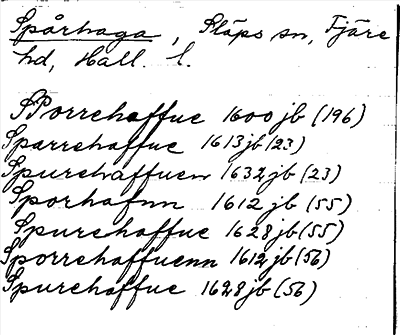 Spårhaga, Släps sn, Fjäre
hd, Hall. l.
SPorrehaffue 1600 jb (196)
Sparrehaffue 1613 jb (23)
Spurehaffuen 1632 jb (23)
Sporhafnn 1612 jb (55)
Spurehaffue 1628 jb (55)
Sporrehaffuenn 1612 jb (56)
Spurehaffue 1628 jb (56)